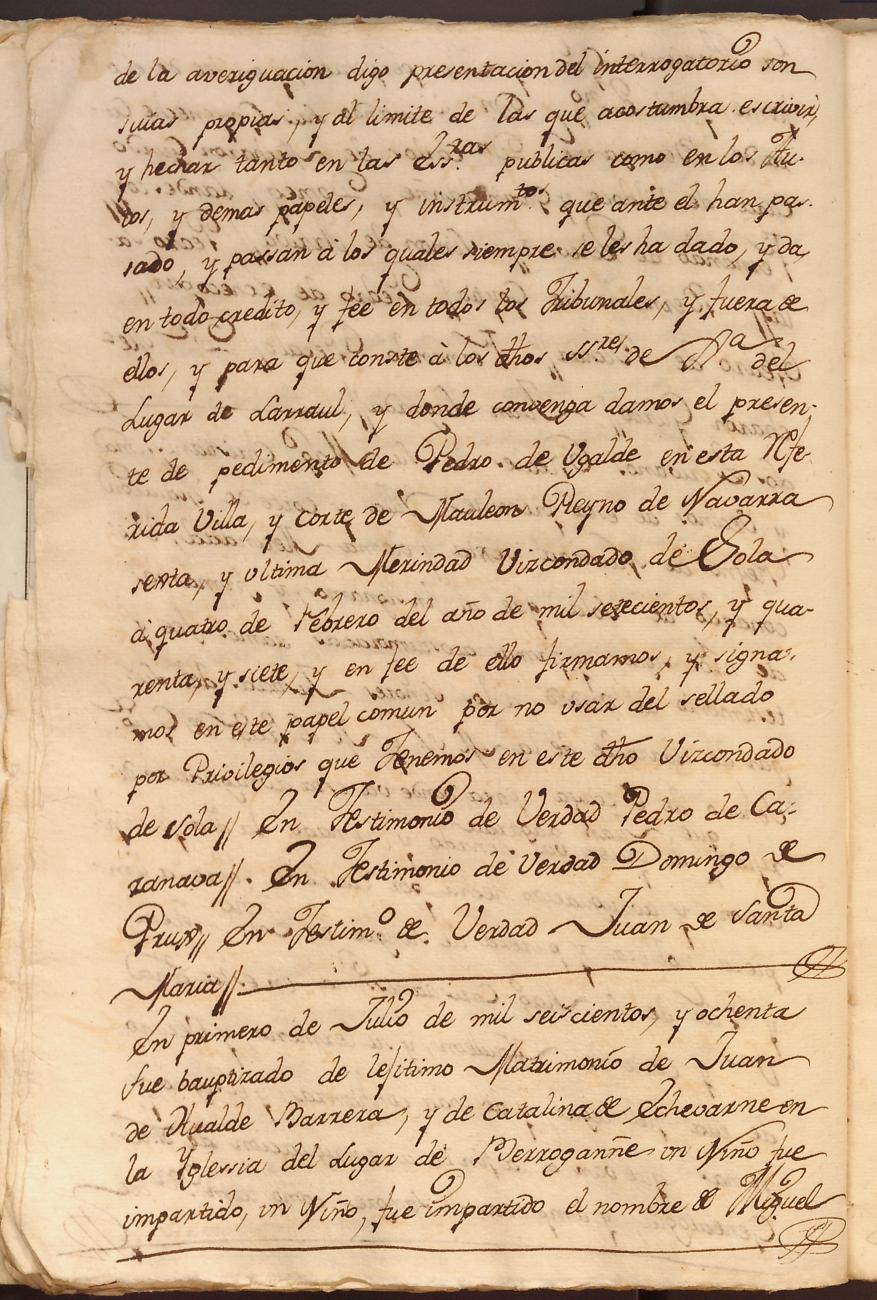 de la averiguacion digo presentacion del interrogatorio son
suias propias, y al limite de las que acostumbra escrivir,
y hechar tanto en las Essras publicas como en los Au-
tos, y demas papeles, y instrumtos que ante el han pa-
sado, y passan à los quales siempre se les ha dado, y da,
en todo credito, y fee en todos los Tribunales, y fuera de
ellos, y para que conste à los dhos ssres de del
Lugar de Larraul, y donde convenga damos el presen-
te de pedimento de Pedro de Ugalde en esta Refe-
rida Villa, y Corte de Mauleon Reyno de Navarra
sexta, y ultima Merindad Vizcondado de Sola
à quatro de Febrero del año de mil setecientos, y qua-
renta, y siete, y en fee de ello firmamos, y signa-
mos en este papel comun por no usar del sellado
por Privilegios que Tenemos en este dho Vizcondado
de Sola // En Testimonio de Verdad Pedro de Ca-
ranava //. En Testimonio de Verdad Domingo de
Prux // En Testimo de Verdad Juan de Santa
Maria //
En primero de Julio de mil seiscientos, y ochenta
fue bauptizado de lexitimo Matrimonio de Juan
de Barrera, y de Catalina de Echevarne en
la Yglessia del Lugar de Berrogañne un Niño fue
impartido, un Niño, fue impartido el nombre de Miguel